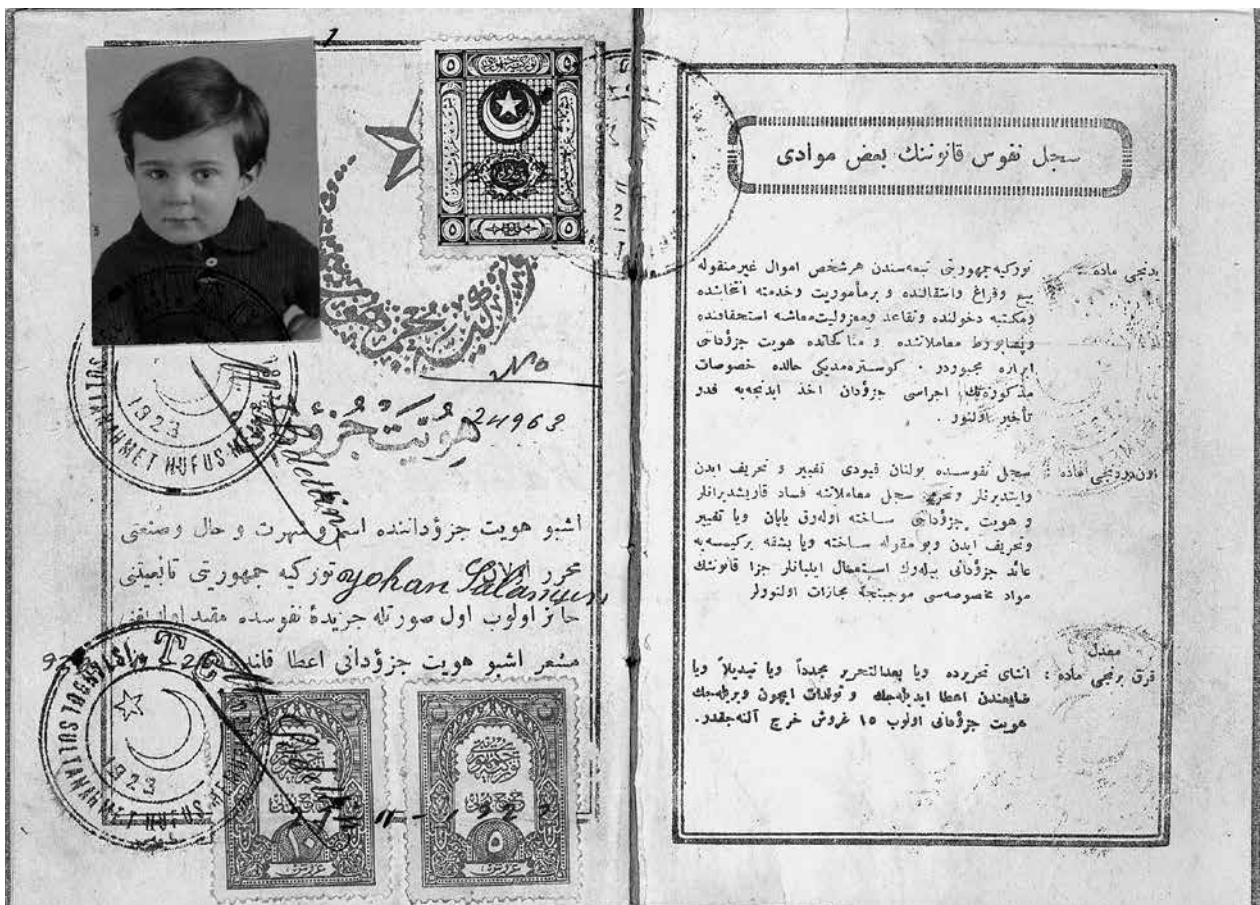 1
No
24963
هويت جزؤدانى
اشبو هويت جزؤداننده اسم و شهرت و حال وصنعتى
محرر اولان Yohan توركيه جمهورتى تابعيتنى
حائز اولوب اول صورتله جريدهٔ نفوسده مقيد اولديغنى
مشعر اشبو هويت جزؤدانى اعطا قلندى
T.C.
SULTANAHMET NUFUS
1923
T.C.
SULTANAHMET NUFUS
1923
٥ ٥
٥ ٥
١٠
غروش
٥
غروش
سجل نفوس قانوننك بعض موادى
يدنجى ماده : توركيه جمهورتى تبعه سندن هرشخص اموال غيرمنقوله
بيع وفراغ وانتقالنده و برمأموريت وخدمته انتخابنده
ومكتبه دخولنده وتقاعد ومعزوليت معاشه استحقاقنده
وپساپورط معاملاتنده و مناكحاتده هويت جزؤدانى
ابرازه مجبوردر . كوسترەمديكى حالده خصوصات
مذكورەنك اجراسى جزؤدان اخذ ايدنجەيه قدر
تأخير اولنور .
اون برنجى ماده : سجل نفوسده بولنان قيودى تغيير و تحريف ايدن
وايتديرنلر وتحرير سجل معاملاتنه فساد قاريشديرانلر
و هويت جزؤدانى ساخته اولەرق ياپان ويا تغيير
وتحريف ايدن وبو مقوله ساخته ويا بشقه بركيمسەيه
عائد جزؤدانى بيلەرك استعمال ايليانلر جزا قانوننك
مواد مخصوصەسى موجبنجه مجازات اولنورلر
معدل
قرق برنجى ماده : اثناى تحريرده ويا بعدالتحرير مجدداً ويا تبديلاً ويا
ضايعندن اعطا ايديلەجك و تولدات ايچون ويريلەجك
هويت جزؤدانى اولوب ١٥ غروش خرج آلنەجقدر.